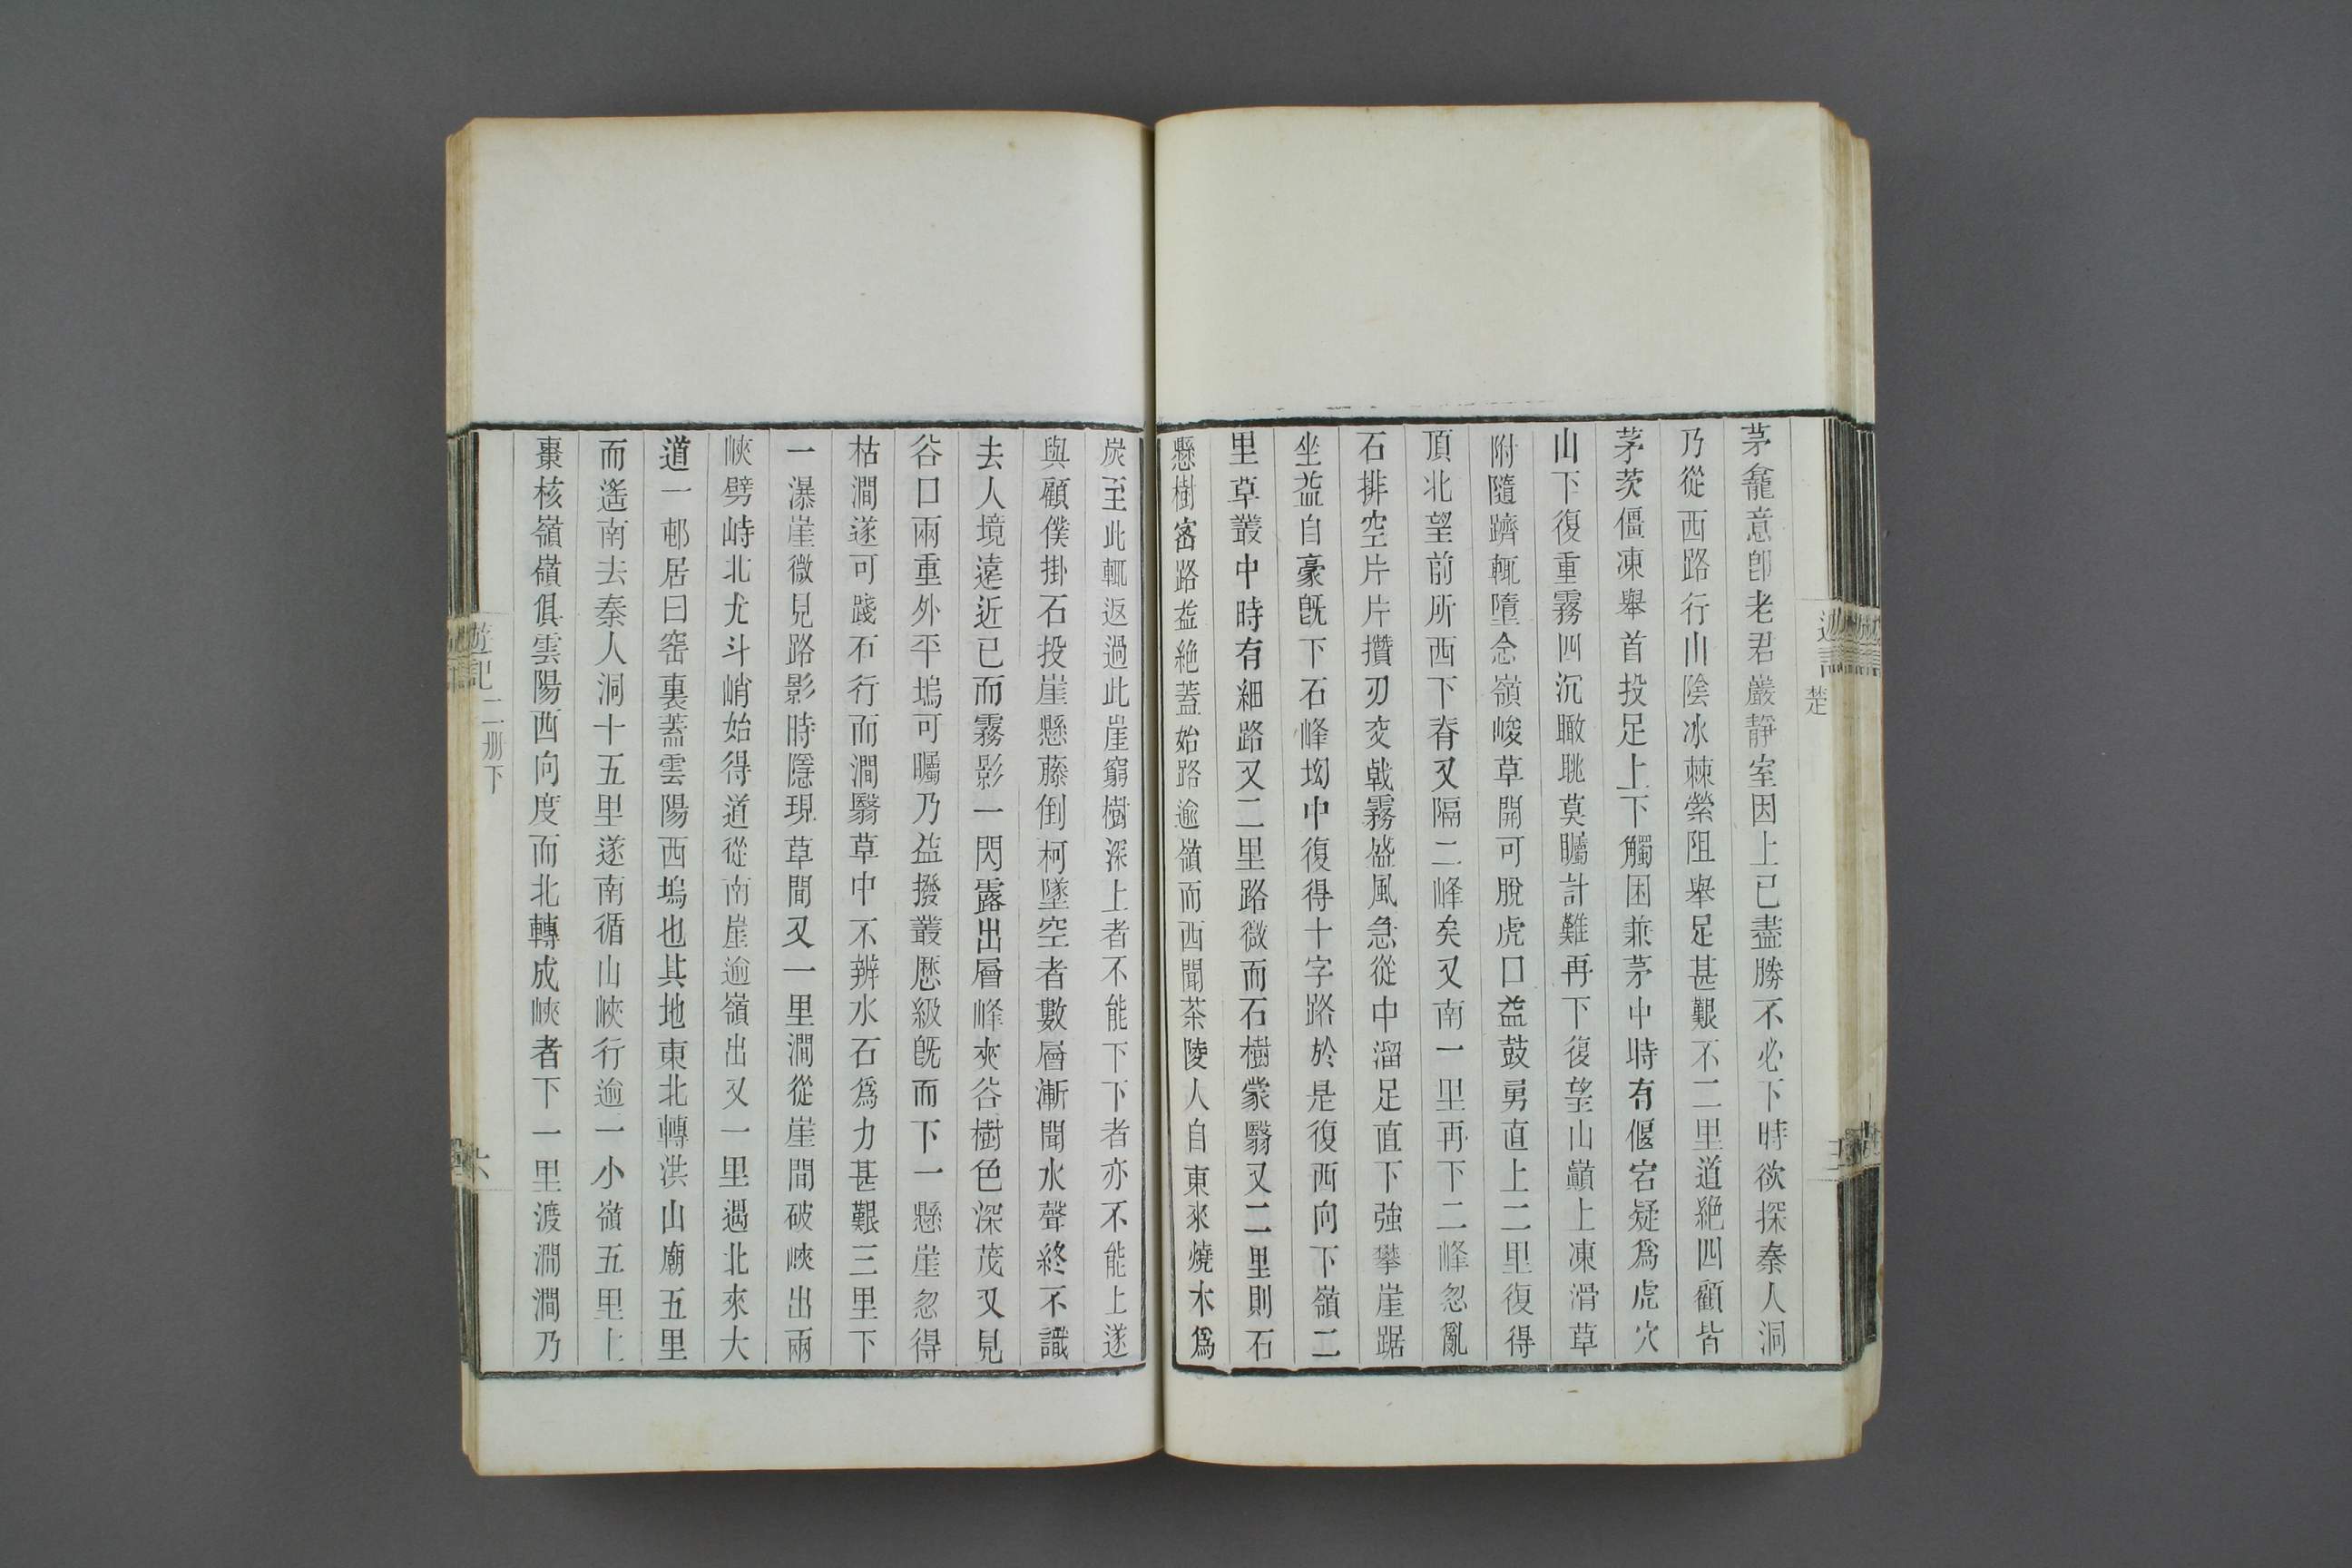 茅龕意卽老君巖靜室因上已盡勝不必下時欲探秦人洞
乃從西路行山陰冰棘縈阻舉足甚艱不二里道絶四顧皆
茅茨僵凍舉首投足上下觸困兼茅中時有偃宕疑爲虎穴
山下復重霧四沉瞰眺莫矚計難再下復望山巔上凍滑草
附隨躋輒墮念嶺峻草開可脫虎口益鼓勇直上二里復得
頂北望前所西下脊又隔二峰矣又南一里再下二峰忽亂
石排空片片攢刃交戟霧盛風急從中溜足直下強攀崖踞
坐益自豪旣下石峰坳中復得十字路於是復西向下嶺二
里草叢中時有細路又二里路微而石樹蒙翳又二里則石
懸樹密路益絶蓋始路逾嶺而西聞茶陵人自東來燒木爲
炭至此輒返過此崖窮樹深上者不能下下者亦不能上遂
與顧僕掛石投崖懸藤倒柯墜空者數層漸聞水聲終不識
去人境遠近已而霧影一閃露出層峰夾谷樹色深茂又見
谷口兩重外平塢可矚乃益撥叢歷級旣而下一懸崖忽得
枯澗遂可踐石行而澗翳草中不辨水石爲力甚艱三里下
一瀑崖微見路影時隱現草間又一里澗從崖間破峽出兩
峽劈峙北尤斗峭始得道從南崖逾嶺出又一里遇北來大
道一邨居曰窑裏蓋雲陽西塢也其地東北轉洪山廟五里
而遙南去秦人洞十五里遂南循山峽行逾一小嶺五里上
棗核嶺嶺俱雲陽西向度而北轉成峽者下一里渡澗澗乃
遊記 二册下 六